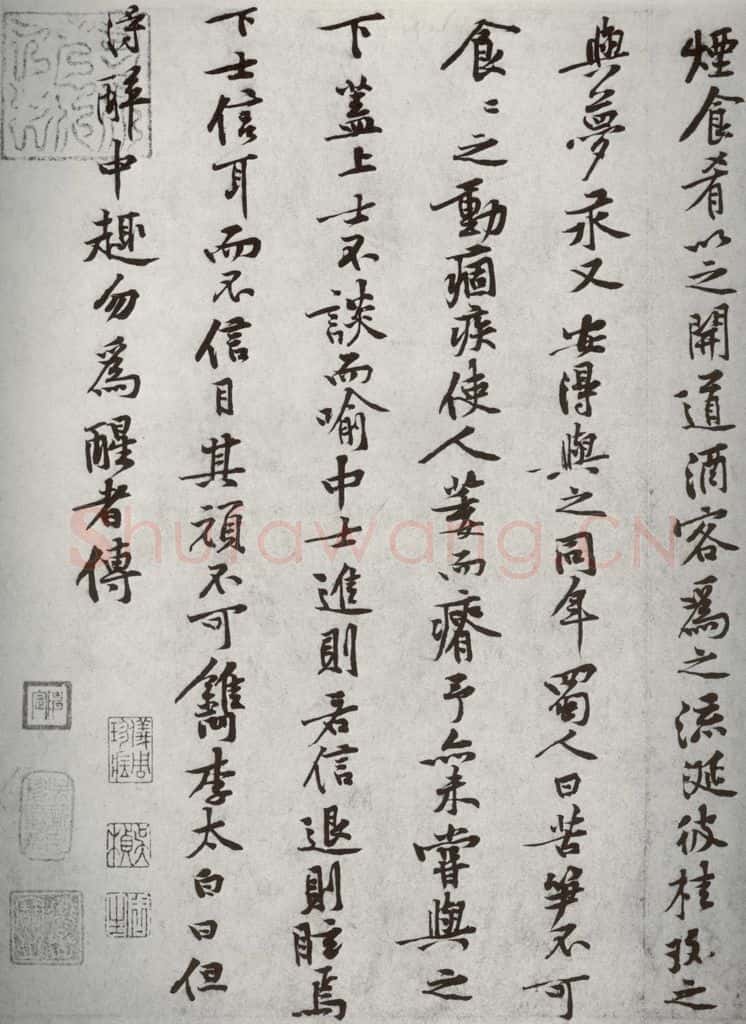 煙食肴以之開道酒客爲之流涎彼桂玫之
與夢汞又安得與之同年蜀人曰苦笋不可
食〻之動痼疾使人萎而瘠予亦未嘗與之
下蓋上士不談而喻中士進則若信退則眩焉
下士信耳而不信目其頑不可鐫李太白曰但
得醉中趣勿爲醒者傳
儀周珍藏
Shufawang.CN